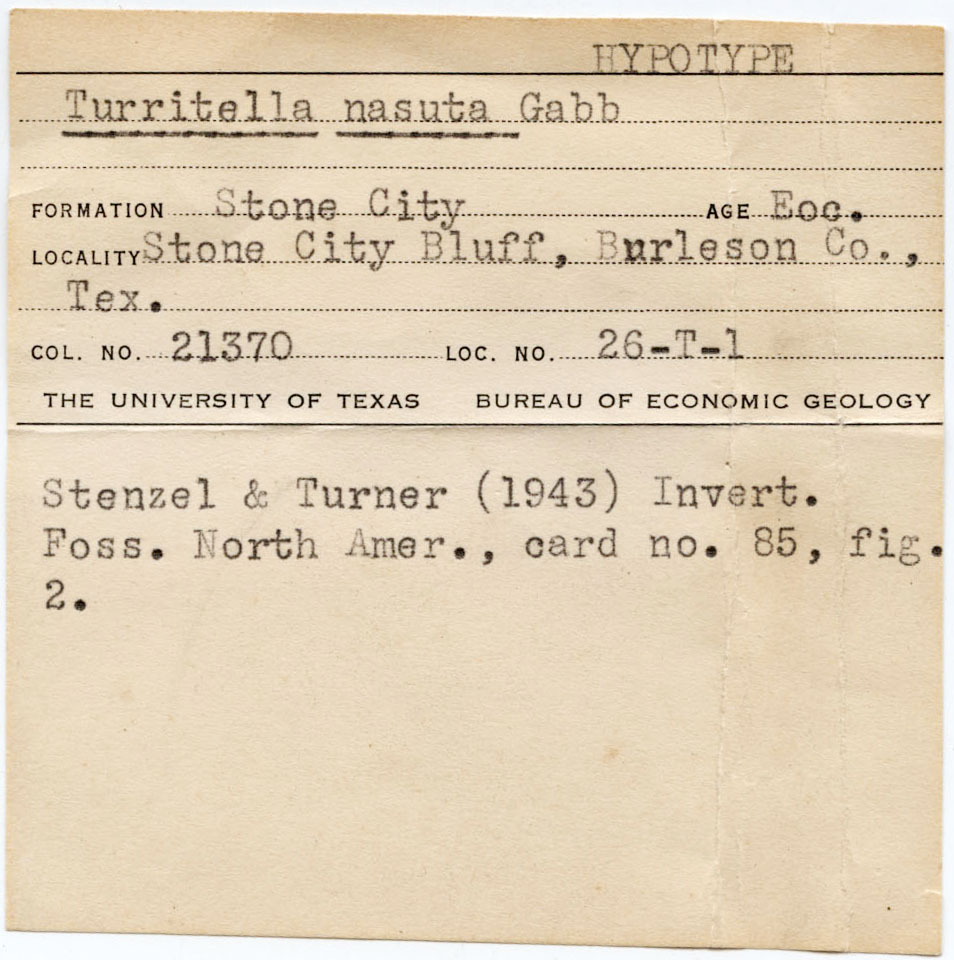 HYPOTYPE
Turritella nasuta Gabb
FORMATION Stone City AGE Eoc.
LOCALITY Stone City Bluff, Burleson Co.,
Tex.
COL. NO. 21370 LOC. NO. 26-T-1
THE UNIVERSITY OF TEXAS BUREAU OF ECONOMIC GEOLOGY
Stenzel & Turner (1943) Invert.
Foss. North Amer., card no. 85, fig.
2.